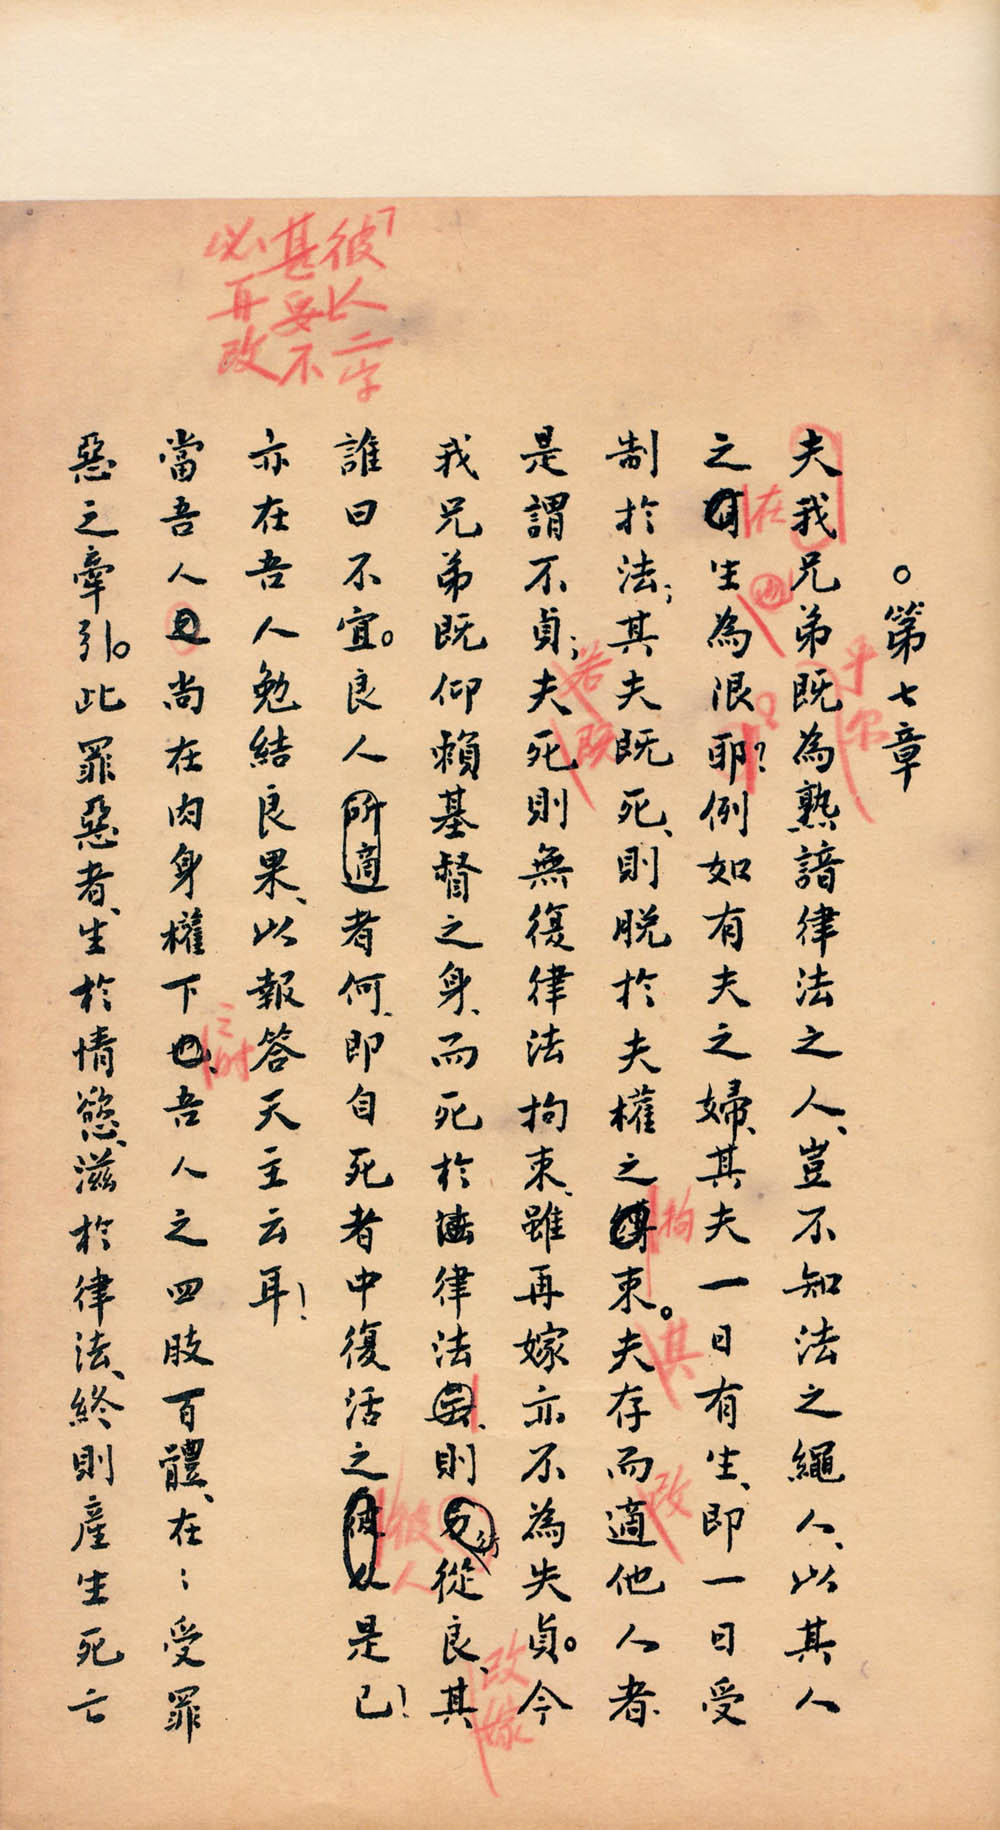 「彼人二字
甚妥不
必再改
。第七章
夫我兄弟既為熟諳律法之人、豈不知法之繩人、以其人
乎
尔
之有生為限耶？例如有夫之婦、其夫一日有生、即一日受
在
制於法；其夫既死、則脫於夫權之縛束。夫存而適他人者、
拘
其
改
是謂不貞；夫死則無復律法拘束、雖再嫁亦不為失貞。今
若
既
我兄弟既仰賴基督之身、而死於律法、則另行從良、其
改嫁
誰曰不宜。良人所適者何、即自死者中復活之彼人是已！
彼人
亦在吾人勉結良果、以報答天主云耳！
當吾人尚在肉身權下、吾人之四肢百體、在在受罪
之時
惡之牽引。此罪惡者、生於情慾、滋於律法、終則產生死亡